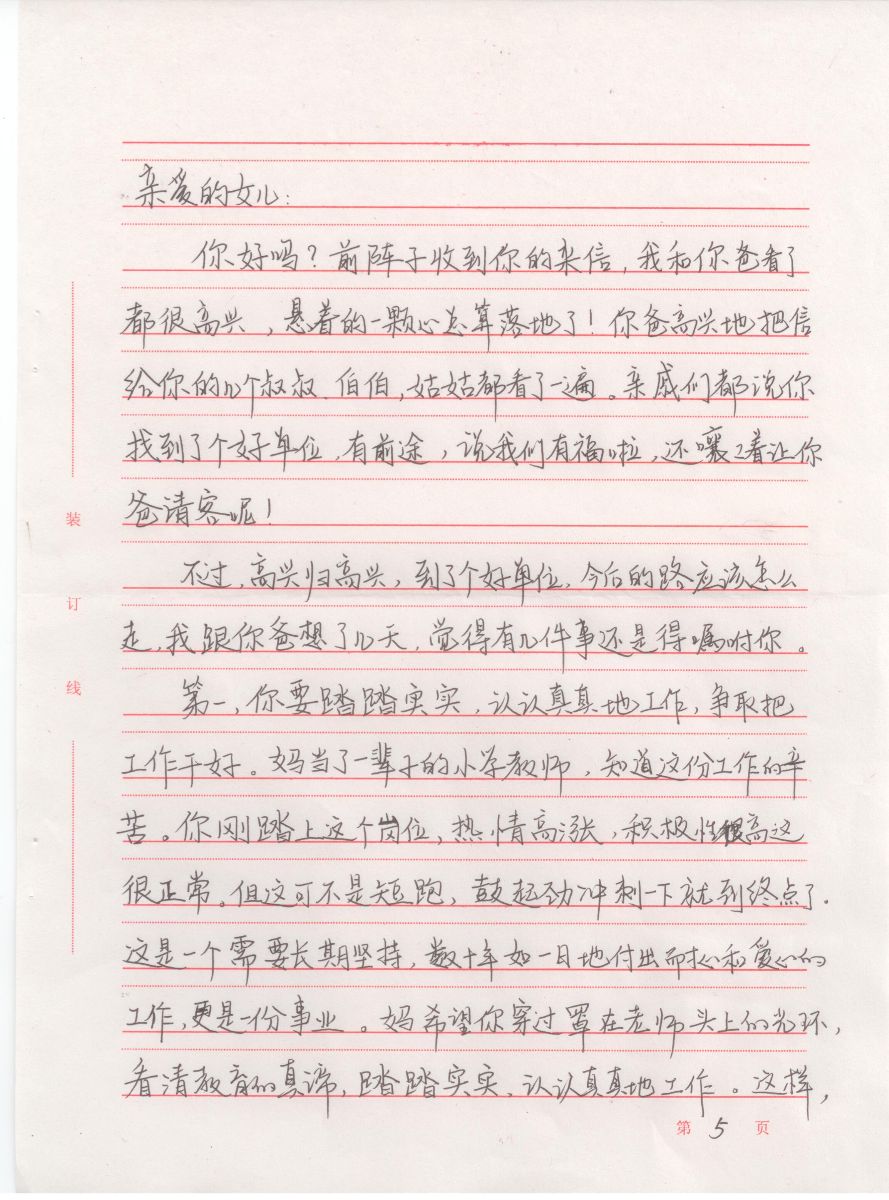 亲爱的女儿：
你好吗？前阵子收到你的来信，我和你爸看了
都很高兴，悬着的一颗心总算落地了！你爸高兴地把信
给你的几个叔叔、伯伯，姑姑都看了一遍。亲戚们都说你
找到了个好单位，有前途，说我们有福啦，还嚷嚷着让你
爸请客呢！
不过，高兴归高兴，到了个好单位，今后的路应该怎么
走，我跟你爸想了几天，觉得有几件事还是得嘱咐你。
第一，你要踏踏实实，认认真真地工作，争取把
工作干好。妈当了一辈子的小学教师，知道这份工作的辛
苦。你刚踏上这个岗位，热情高涨，积极性很高这
很正常。但这可不是短跑，鼓起劲冲刺一下就到终点了．
这是一个需要长期坚持，数十年如一日地付出耐心和爱心的
工作，更是一份事业。妈希望你穿过罩在老师头上的光环，
看清教育的真谛，踏踏实实、认认真真地工作。这样，
装
订
线
第 5 页